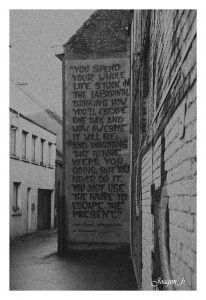 "YOU SPEND
YOUR WHOLE
LIFE STUCK IN
THE LABYRINTH,
THINKING HOW
YOU'LL ESCAPE
ONE DAY, AND
HOW AWESOME
IT WILL BE,
AND IMAGINING
THAT FUTURE
KEEPS YOU
GOING, BUT YOU
NEVER DO IT.
YOU JUST USE
THE FUTURE TO
ESCAPE THE
PRESENT."